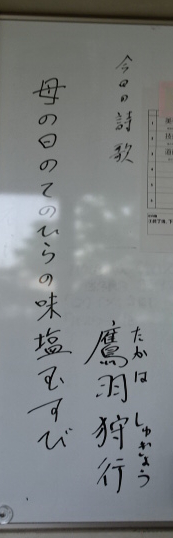 今日の詩歌
母の日のてのひらの味塩むすび
鷹羽狩行
たかは しゅぎょう